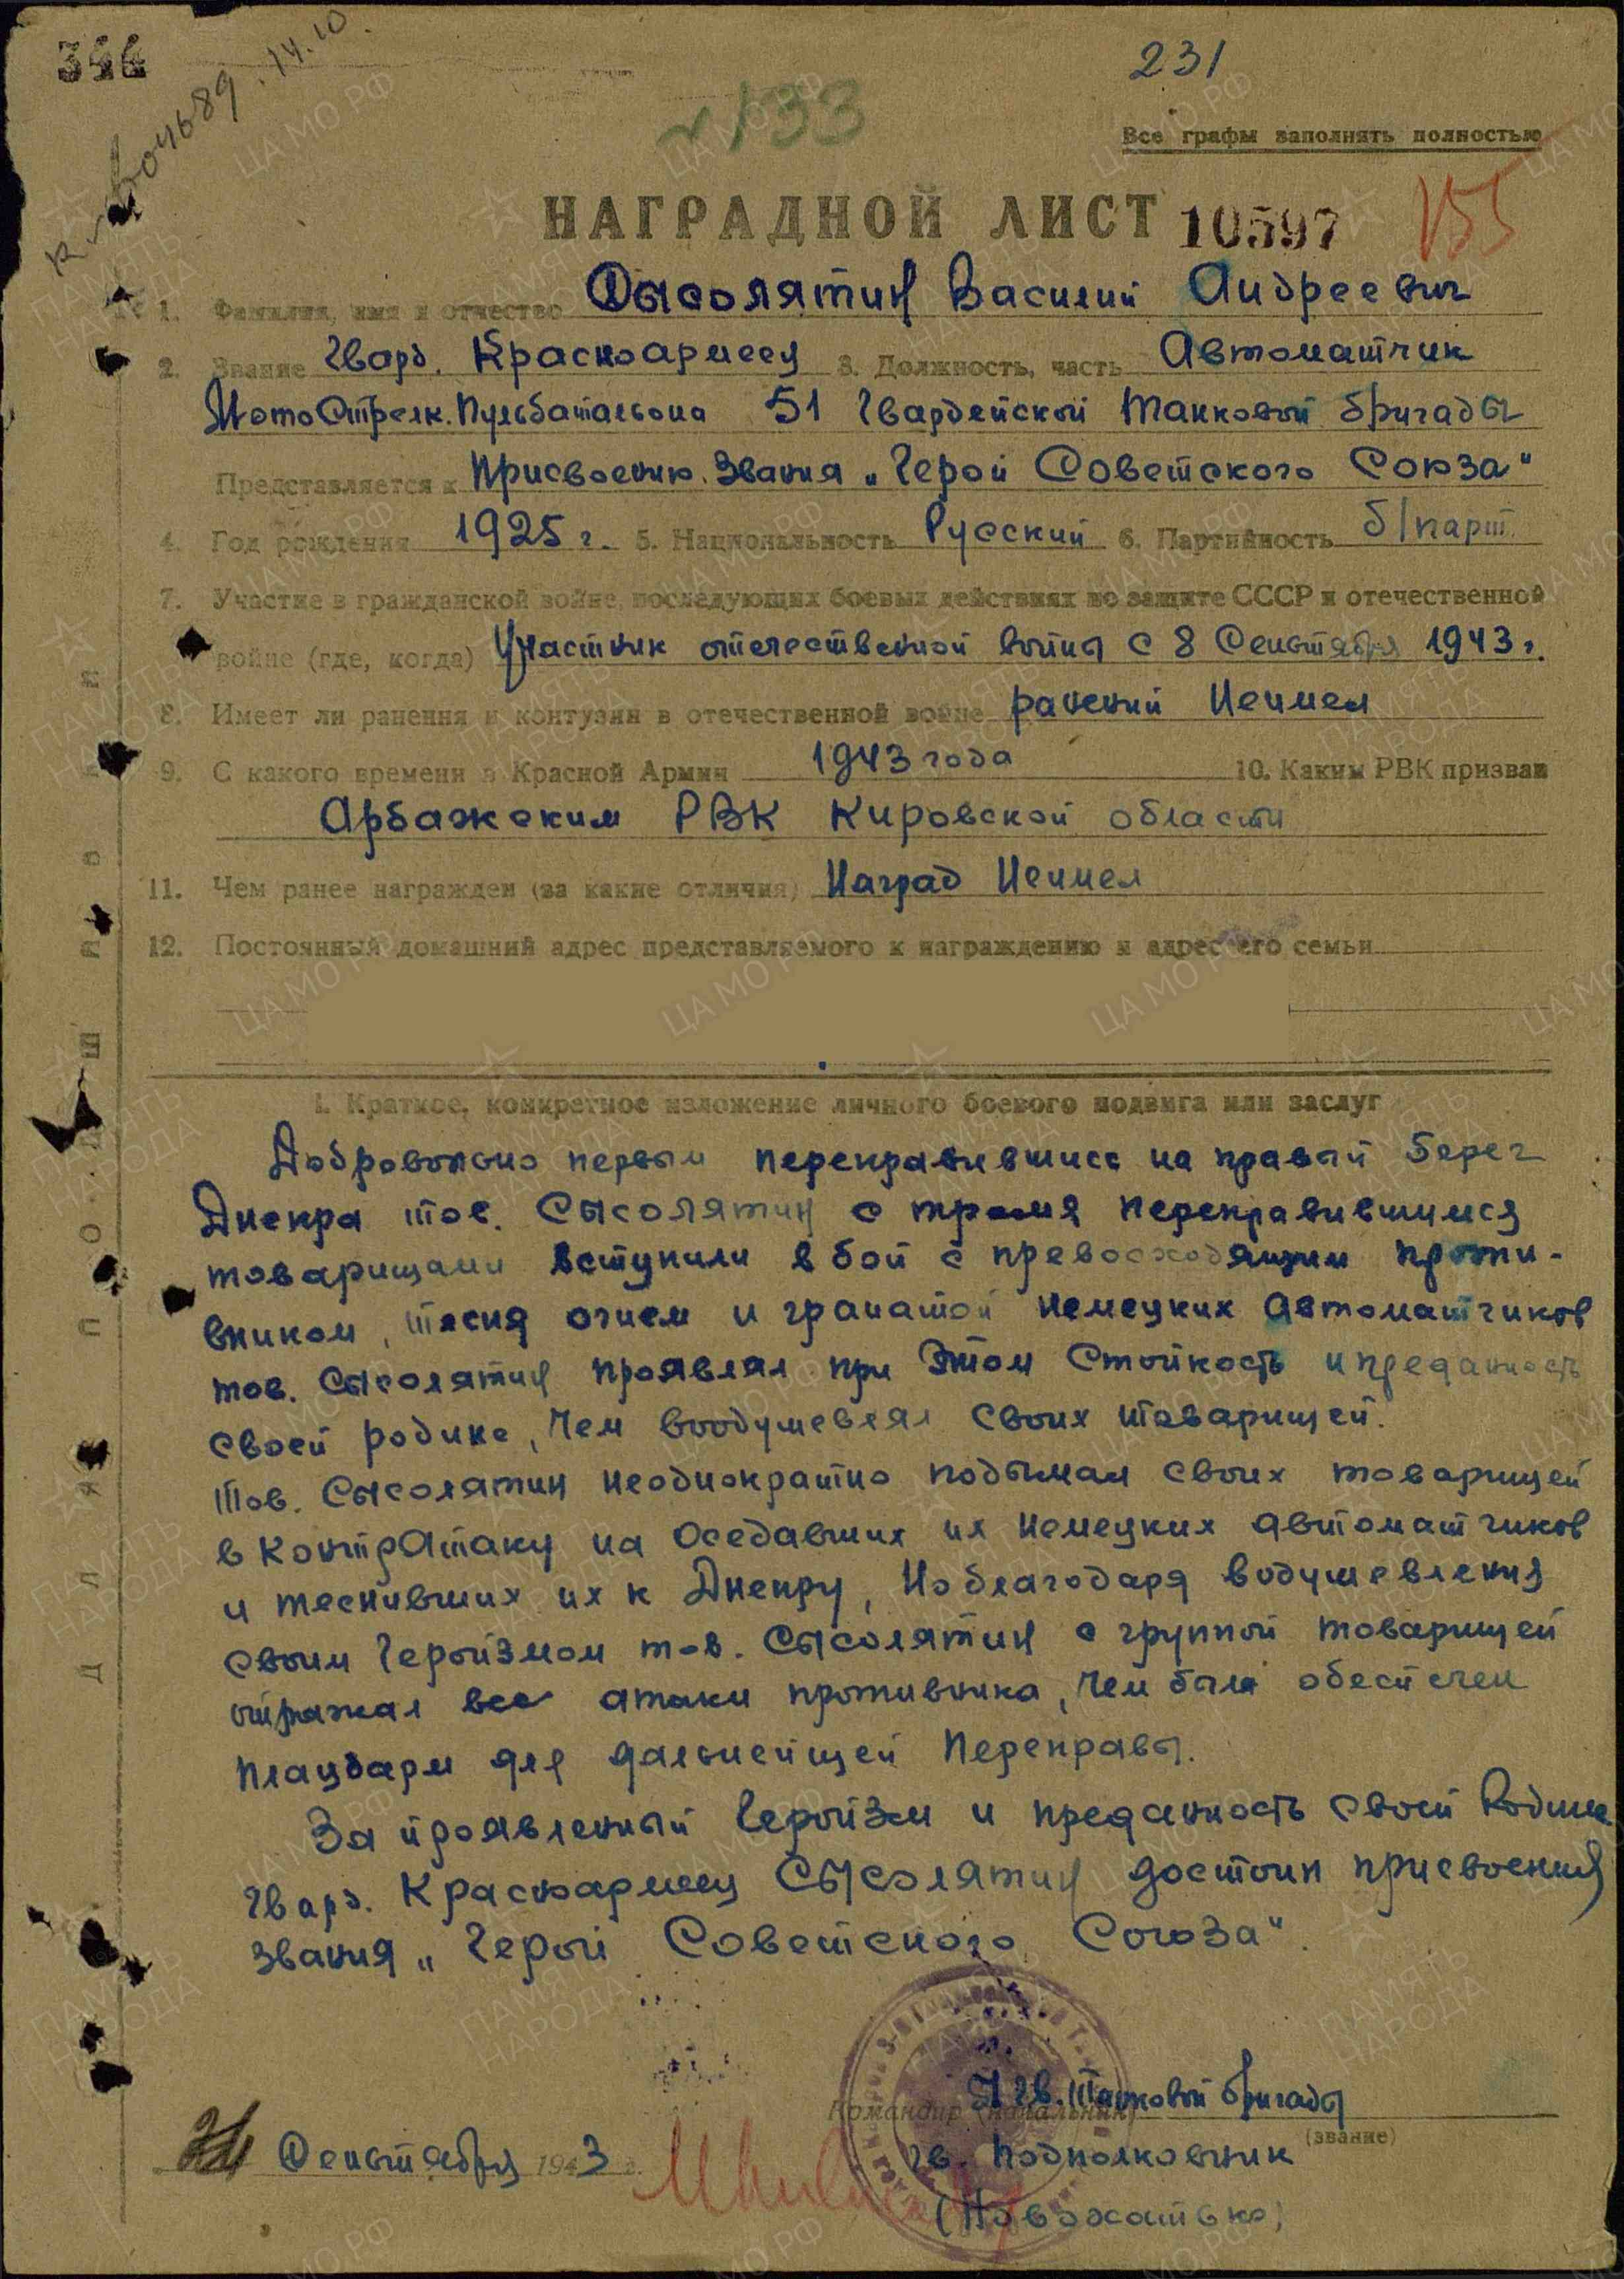 344
14.10.
231
№ 133
Все графы заполнять полностью
НАГРАДНОЙ ЛИСТ 10597 155
1. Фамилия, имя и отчество Сысолятин Василий Андреевич
2. Звание Гвард. Красноармеец 3. Должность, часть Автоматчик
МотоСтрелк. Пульбатальона 51 Гвардейской Танковой бригады
Представляется к Присвоению Звания „Герой Советского Союза"
4. Год рождения 1925 г. 5. Национальность Русский 6. Партийность б/парт.
7. Участие в гражданской войне, последующих боевых действиях по защите СССР и отечественной
войне (где, когда) Участник отечественной войны с 8 Сентября 1943 г.
8. Имеет ли ранения и контузии в отечественной войне ранений Неимел
9. С какого времени в Красной Армии 1943 года 10. Каким РВК призван
Арбажским РВК Кировской области
11. Чем ранее награжден (за какие отличия) Наград Неимел
12. Постоянный домашний адрес представляемого к награждению и адрес его семьи
1. Краткое, конкретное изложение личного боевого подвига или заслуг
Добровольно первым перекравившись на правый берег
Днепра тов. Сысолятин с тремя перекравившимися
товарищами вступили в бой с превосходящим проти-
вником, тесня огнем и гранатой немецких автоматчиков
тов. Сысолятин проявлял при Этом Стойкость и преданность
своей родине, Чем воодушевлял своих товарищей.
Тов. Сысолятин неоднократно подымал своих товарищей
в КонтрАтаку на Оседавших их немецких автоматчиков
и теснивших их к Днепру, Но благодаря водушевления
своим Геройзмом тов. Сысолятин с группой товарищей
отражал все атаки противника, чем была обеспечен
плацдарм для дальнейщей Переправы.
За проявленный Геройзм и преданность своей Родине
Гвард. Красноармеец Сысолятин достоин присвоения
звания „Герой Советского Союза".
Гв. Танковой бригады
Командир (начальник)
(звание)
24 Сентября 1943 г. Гв. Подполковник
(Новохатько)
ДЛЯ ПОДШИВКИ
ЦА МО РФ
ПАМЯТЬ НАРОДА